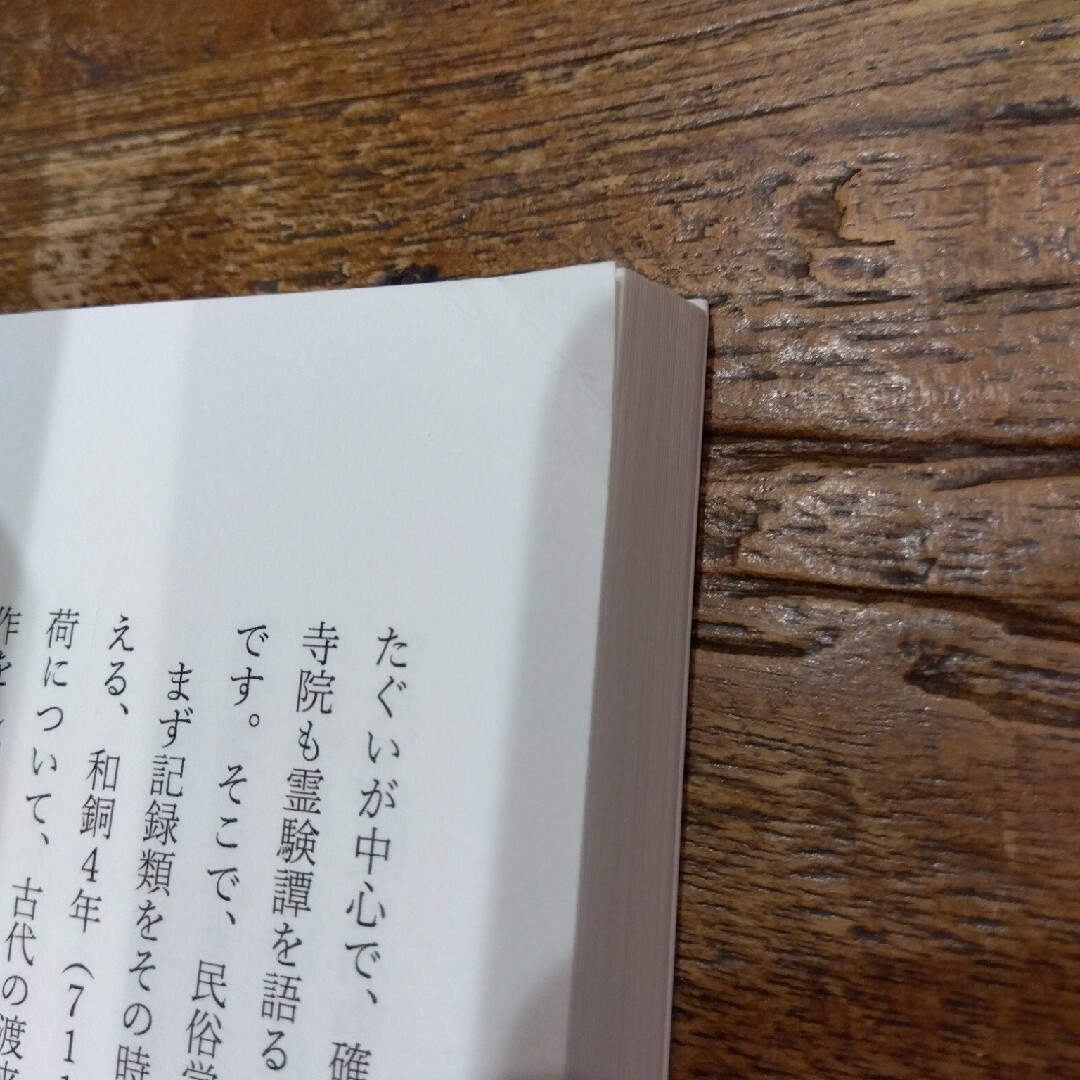 たぐいが中心で、確
寺院も霊験譚を語る
です。そこで、民俗学
まず記録類をその時
える、和銅4年（711
荷について、古代の渡来
作を